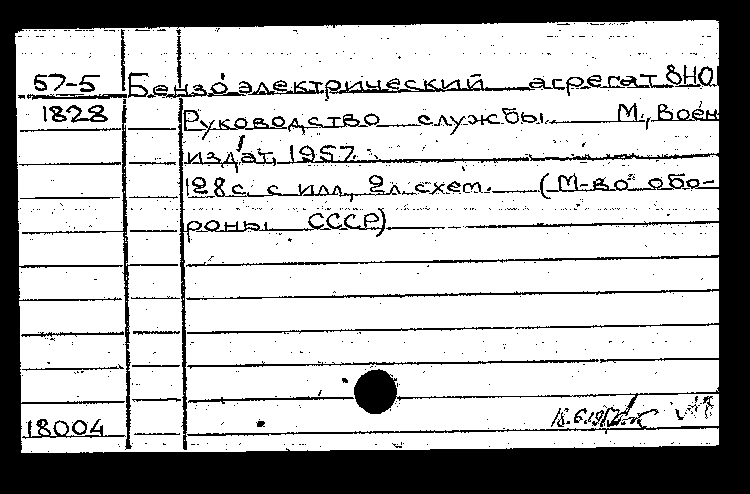 57-5 Бензоэлектрический агрегат 8НО1
1828 Руководство службы. М., Воен
издат, 1957.
128с. с илл., 2л. схем. (М-во обо-
роны СССР)
18004